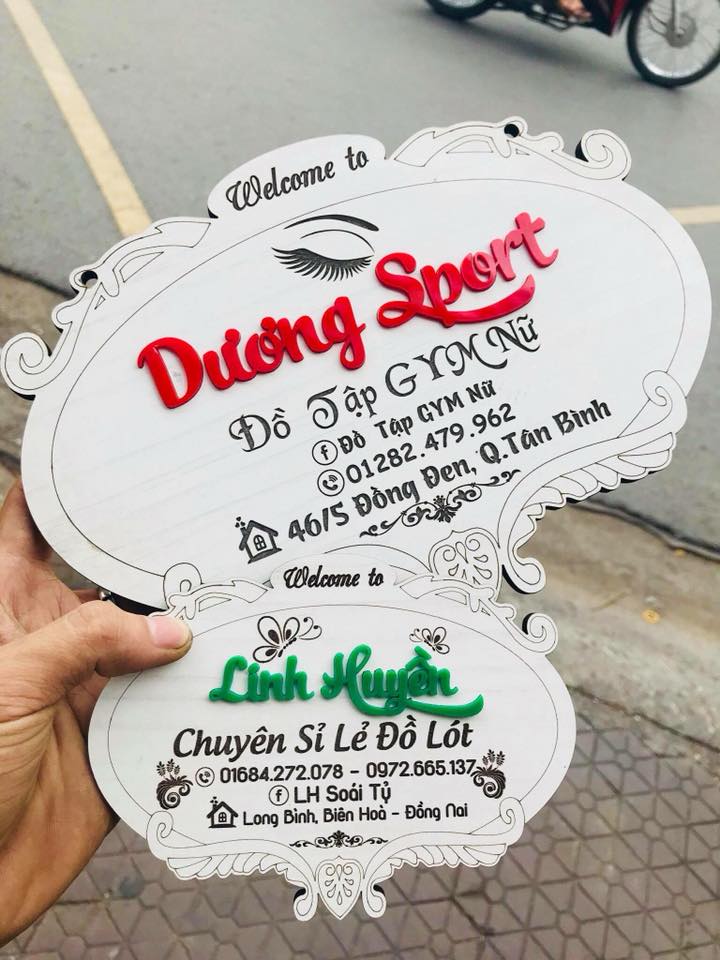 Welcome to
Dương Sport
Đồ Tập GYM Nữ
Đồ Tập GYM Nữ
01282.479.962
46/5 Đồng Đen, Q.Tân Bình
Welcome to
Linh Huyền
Chuyên Sỉ Lẻ Đồ Lót
01684.272.078 - 0972.665.137
LH Soái Tỷ
Long Bình, Biên Hoà - Đồng Nai